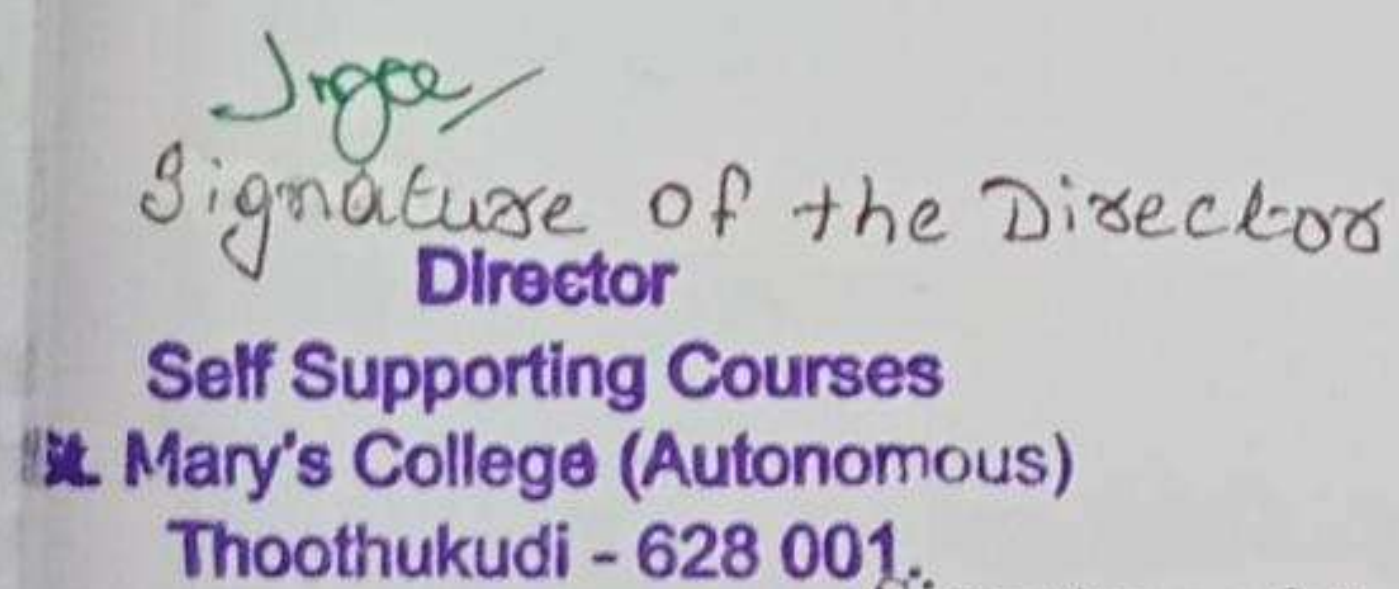 Signature of the Director
Director
Self Supporting Courses
St. Mary's College (Autonomous)
Thoothukudi - 628 001.